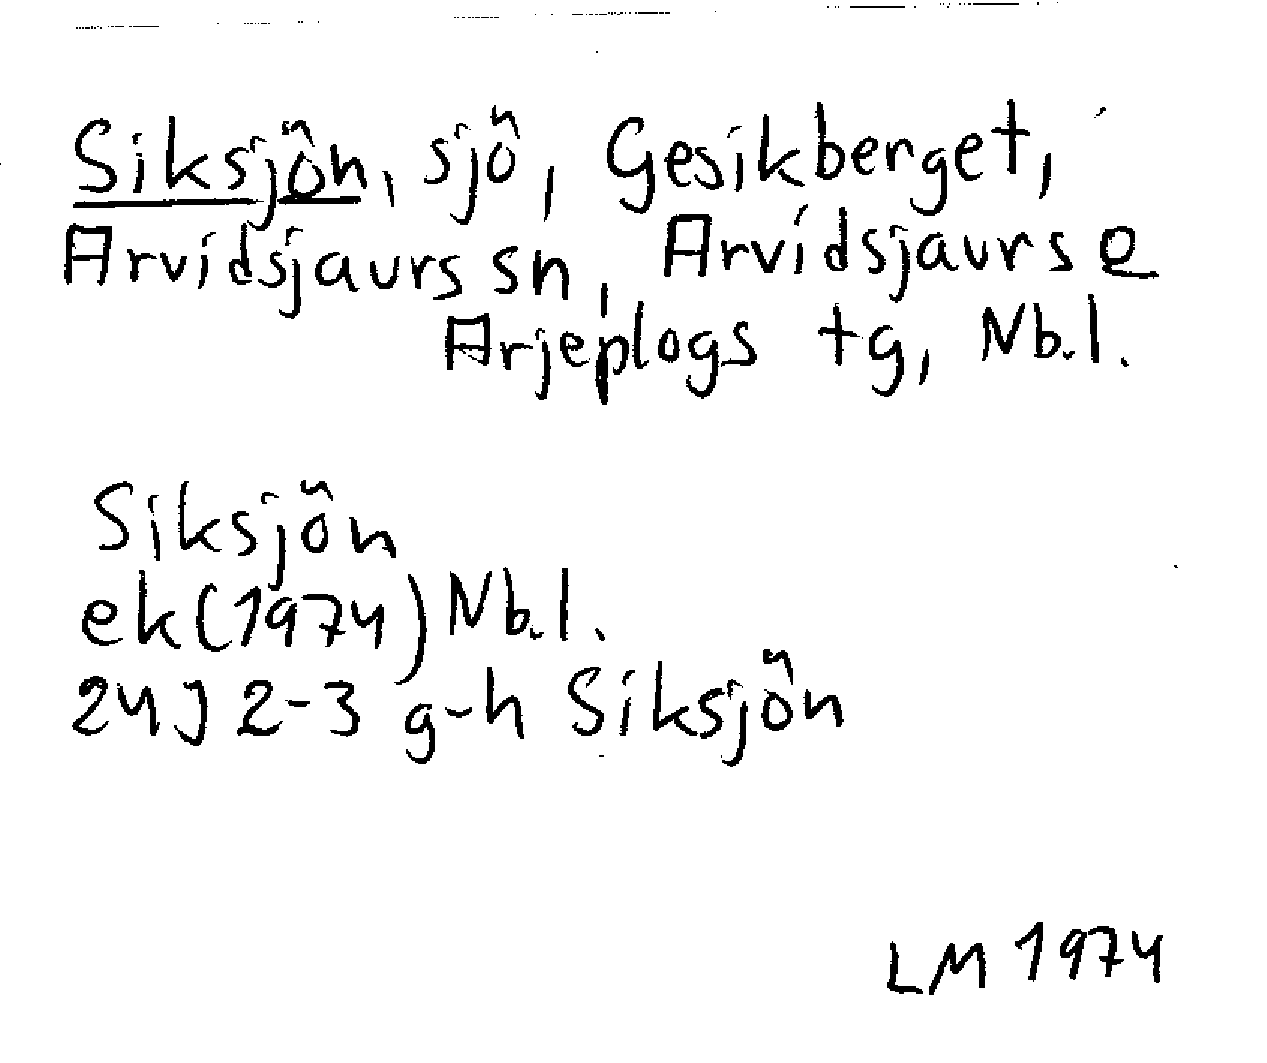 Siksjön, sjö, Gesikberget,
Arvidsjaurs sn, Arvidsjaurs o
Arjeplogs tg, Nb.l.
Siksjön
ek (1974) Nb.l.
24J 2-3 g-h Siksjön
LM 1974